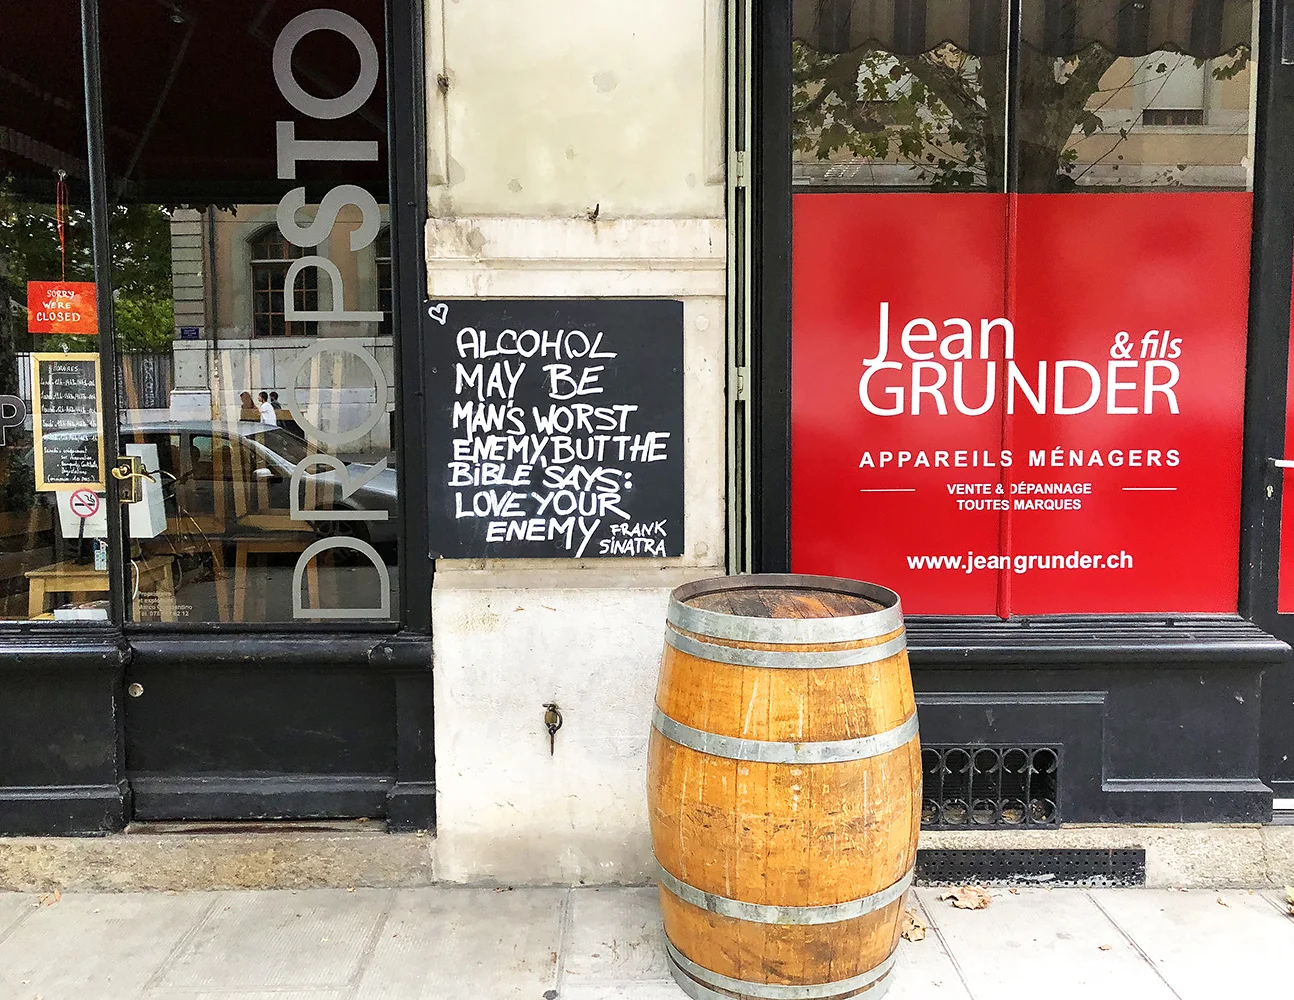 DROPSTO
SORRY
WE'RE
CLOSED
HORAIRES
P
ALCOHOL
MAY BE
MAN'S WORST
ENEMY, BUT THE
BIBLE SAYS:
LOVE YOUR
ENEMY FRANK
SINATRA
Jean
& fils
GRUNDER
APPAREILS MÉNAGERS
VENTE & DÉPANNAGE
TOUTES MARQUES
www.jeangrunder.ch